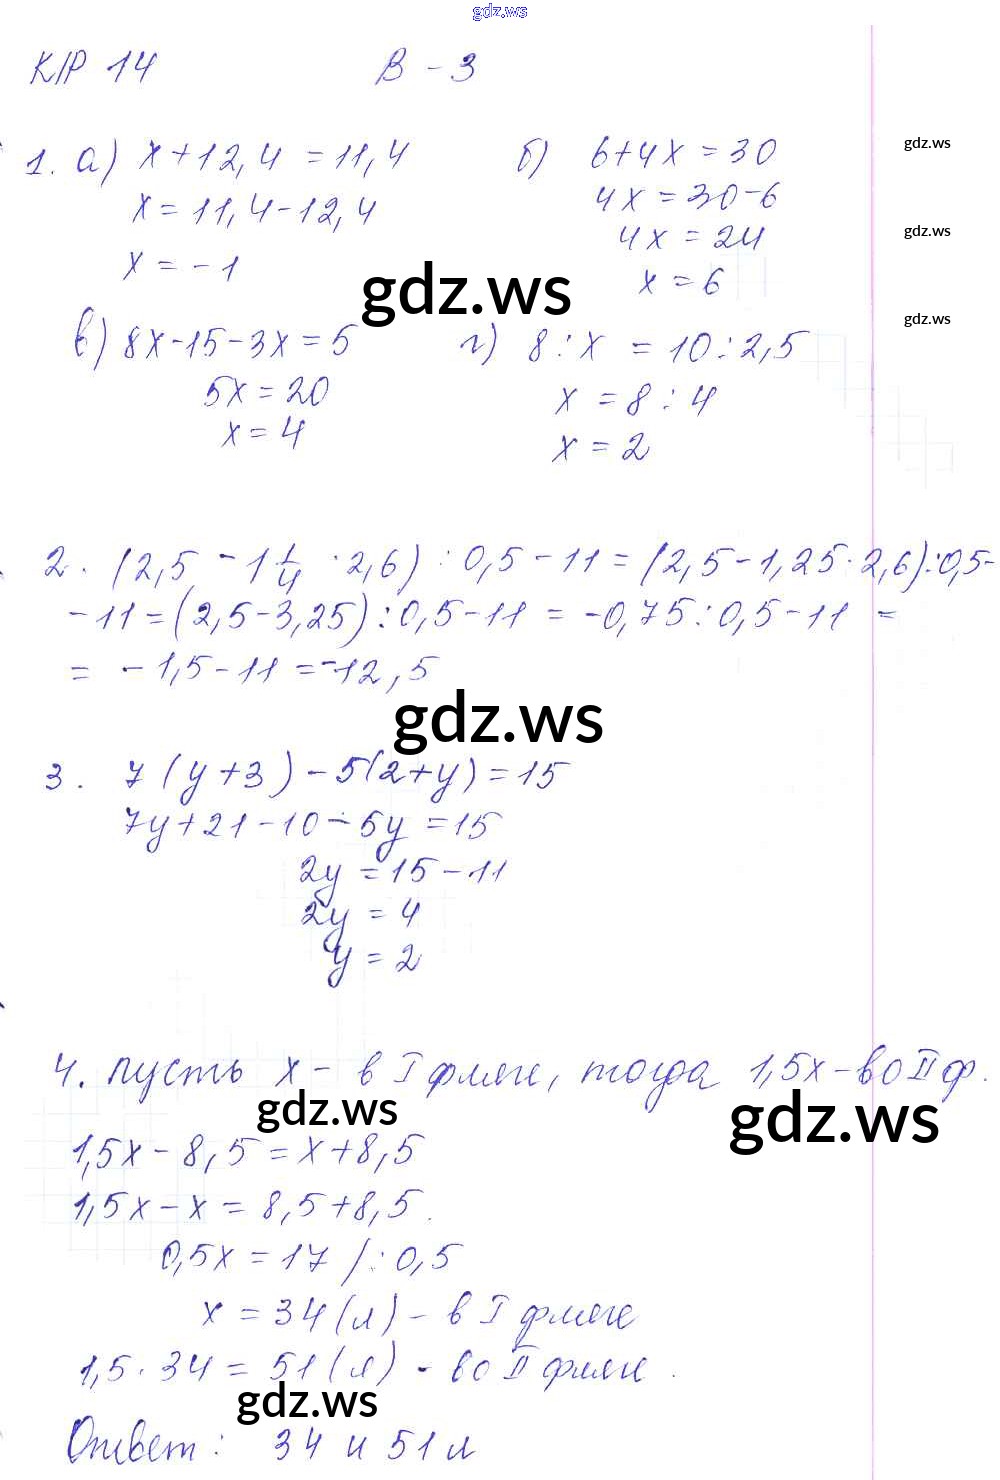 gdz.ws
К/Р 14 В - 3
1. а) x + 12,4 = 11,4 б) 6 + 4x = 30
gdz.ws
x = 11,4 - 12,4 4x = 30 - 6
4x = 24
gdz.ws
x = - 1 x = 6
gdz.ws
gdz.ws
в) 8x - 15 - 3x = 5 г) 8 : x = 10 : 2,5
5x = 20 x = 8 : 4
x = 4 x = 2
2. (2,5 - 1 1/4 · 2,6) : 0,5 - 11 = (2,5 - 1,25 · 2,6) : 0,5 -
- 11 = (2,5 - 3,25) : 0,5 - 11 = - 0,75 : 0,5 - 11 =
= - 1,5 - 11 = -12,5
gdz.ws
3. 7 (y + 3) - 5(2 + y) = 15
7y + 21 - 10 - 5y = 15
2y = 15 - 11
2y = 4
y = 2
4. Пусть x - в I фляге, тогда 1,5x - во II ф.
gdz.ws
gdz.ws
1,5x - 8,5 = x + 8,5
1,5x - x = 8,5 + 8,5.
0,5x = 17 / : 0,5
x = 34 (л) - в I фляге
1,5 · 34 = 51 (л) - во II фляге.
gdz.ws
Ответ: 34 и 51 л